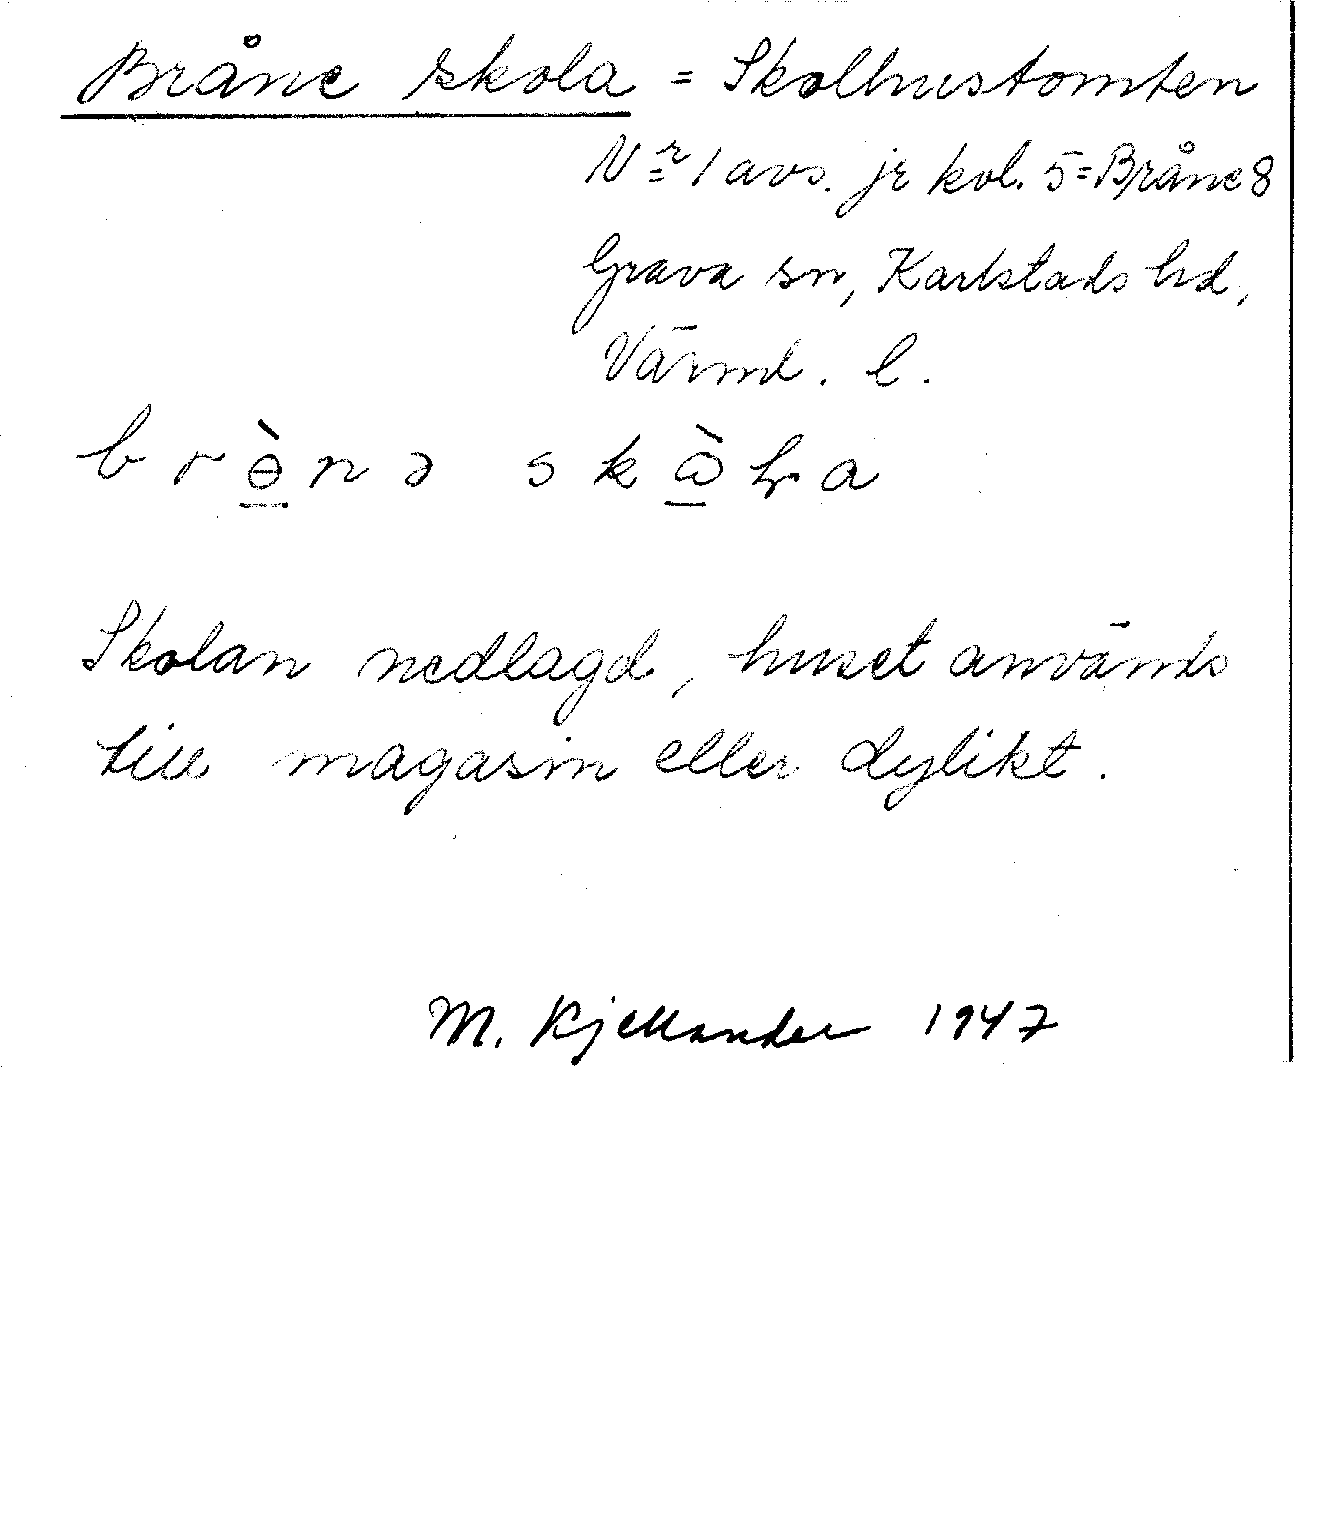 Bråne skola = Skolhustomten
Nr 1 avs. jr kol. 5 = Bråne 8
Grava sn, Karlstads hd,
Värml. l.
brɵ̀nə skὼɽa
Skolan nedlagd, huset används
till magasin eller dylikt.
M. Kjellander 1947